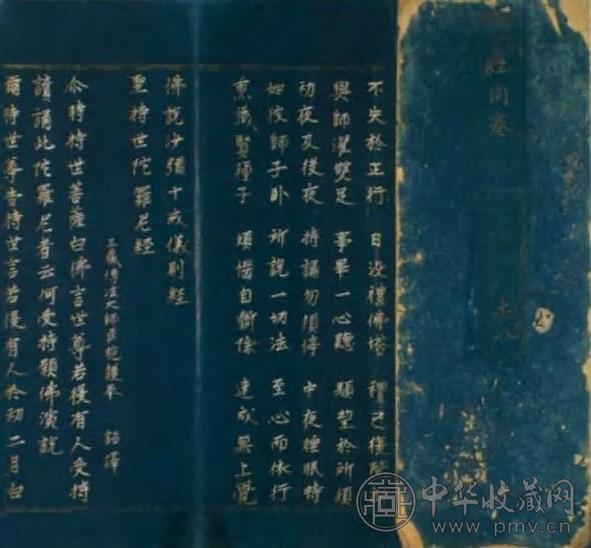 經同卷
不失於正行 日沒禮佛塔 禮已
與師濯雙足 事畢一心聽 望於所願
初夜及後夜 持誦勿須停 中夜睡眠時
如彼師子臥 所說一切法 至心而依行
熏藏賢種子 煩惱自斷除 速成無上覺
佛說沙彌十戒儀則經
聖持世陀羅尼經
三藏傳法大師臣施護奉 詔譯
尒時持世菩薩白佛言世尊若復有人受持
讀誦此陀羅尼者云何受持願佛演說
爾時世尊告持世言若復有人於初二月白
中华收藏网
www.pmv.cn